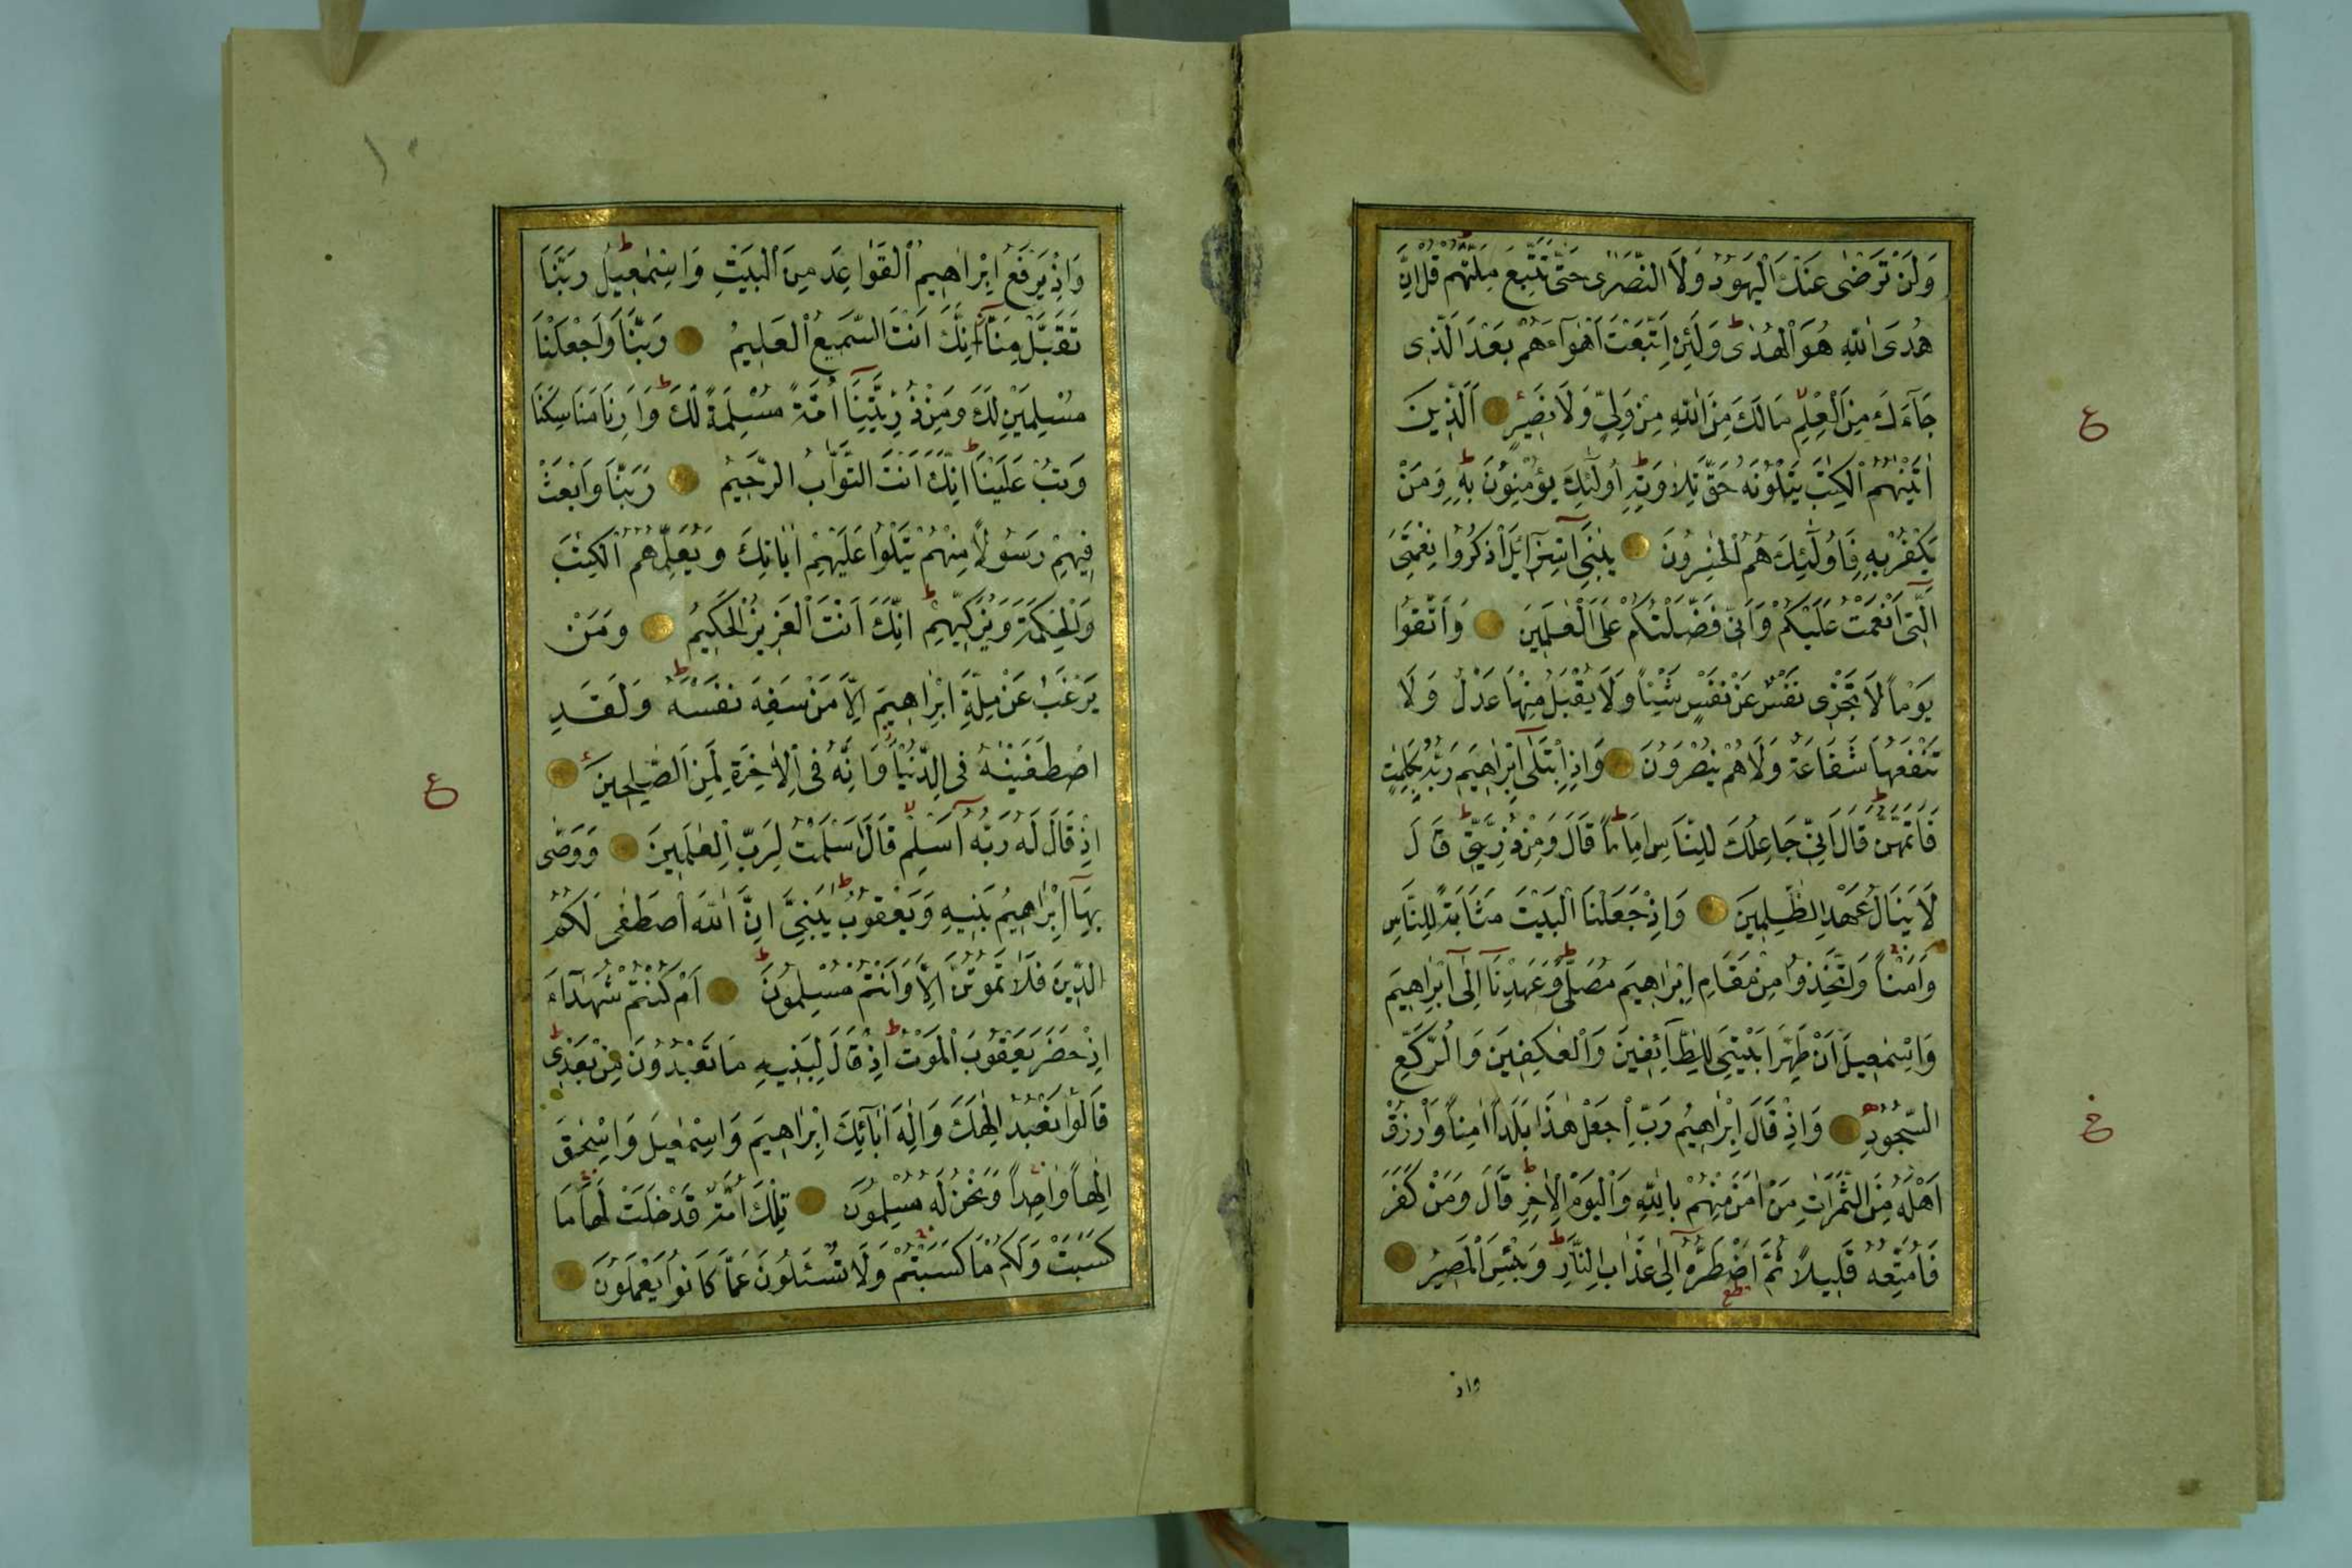 وَلَنْ تَرْضٰى عَنْكَ الْيَهُودُ وَلَا النَّصٰرٰى حَتّٰى تَتَّبِعَ مِلَّتَهُمْ قُلْ اِنَّ
هُدَى اللّٰهِ هُوَ الْهُدٰى وَلَئِنِ اتَّبَعْتَ اَهْوَٓاءَهُمْ بَعْدَ الَّذِى
جَٓاءَكَ مِنَ الْعِلْمِ مَالَكَ مِنَ اللّٰهِ مِنْ وَلِىٍّ وَلَا نَصِيرٍ اَلَّذِينَ
اٰتَيْنٰهُمُ الْكِتٰبَ يَتْلُونَهُ حَقَّ تِلَاوَتِهِ اُولٰٓئِكَ يُؤْمِنُونَ بِهِ وَمَنْ
يَكْفُرْ بِهِ فَاُولٰٓئِكَ هُمُ الْخٰسِرُونَ يٰبَنِٓى اِسْرَٓائِلَ اذْكُرُوا نِعْمَتِىَ
الَّتِٓى اَنْعَمْتُ عَلَيْكُمْ وَاَنِّى فَضَّلْتُكُمْ عَلَى الْعٰلَمِينَ وَاتَّقُوا
يَوْمًا لَا تَجْزِى نَفْسٌ عَنْ نَفْسٍ شَيْئًا وَلَا يُقْبَلُ مِنْهَا عَدْلٌ وَلَا
تَنْفَعُهَا شَفَاعَةٌ وَلَا هُمْ يُنْصَرُونَ وَاِذِ ابْتَلٰٓى اِبْرٰاهِيمَ رَبُّهُ بِكَلِمٰتٍ
فَاَتَمَّهُنَّ قَالَ اِنِّى جَاعِلُكَ لِلنَّاسِ اِمَامًا قَالَ وَمِنْ ذُرِّيَّتِى قَالَ
لَا يَنَالُ عَهْدِ الظّٰلِمِينَ وَاِذْ جَعَلْنَا الْبَيْتَ مَثَابَةً لِلنَّاسِ
وَاَمْنًا وَاتَّخِذُوا مِنْ مَقَامِ اِبْرٰاهِيمَ مُصَلًّى وَعَهِدْنَٓا اِلٰٓى اِبْرٰاهِيمَ
وَاِسْمٰعِيلَ اَنْ طَهِّرَا بَيْتِىَ لِلطَّٓائِفِينَ وَالْعٰكِفِينَ وَالرُّكَّعِ
السُّجُودِ وَاِذْ قَالَ اِبْرٰاهِيمُ رَبِّ اجْعَلْ هٰذَا بَلَدًا اٰمِنًا وَارْزُقْ
اَهْلَهُ مِنَ الثَّمَرَاتِ مَنْ اٰمَنَ مِنْهُمْ بِاللّٰهِ وَالْيَوْمِ الْاٰخِرِ قَالَ وَمَنْ كَفَرَ
فَاُمَتِّعُهُ قَلِيلًا ثُمَّ اَضْطَرُّهُٓ اِلٰى عَذَابِ النَّارِ وَبِئْسَ الْمَصِيرُ
واذ
ع
١٠
وَاِذْ يَرْفَعُ اِبْرٰاهِيمُ الْقَوَاعِدَ مِنَ الْبَيْتِ وَاِسْمٰعِيلُ رَبَّنَا
تَقَبَّلْ مِنَّٓا اِنَّكَ اَنْتَ السَّمِيعُ الْعَلِيمُ رَبَّنَا وَاجْعَلْنَا
مُسْلِمَيْنِ لَكَ وَمِنْ ذُرِّيَّتِنَٓا اُمَّةً مُسْلِمَةً لَكَ وَاَرِنَا مَنَاسِكَنَا
وَتُبْ عَلَيْنَا اِنَّكَ اَنْتَ التَّوَّابُ الرَّحِيمُ رَبَّنَا وَابْعَثْ
فِيهِمْ رَسُولًا مِنْهُمْ يَتْلُوا عَلَيْهِمْ اٰيَاتِكَ وَيُعَلِّمُهُمُ الْكِتٰبَ
وَالْحِكْمَةَ وَيُزَكِّيهِمْ اِنَّكَ اَنْتَ الْعَزِيزُ الْحَكِيمُ وَمَنْ
يَرْغَبُ عَنْ مِلَّةِ اِبْرٰاهِيمَ اِلَّا مَنْ سَفِهَ نَفْسَهُ وَلَقَدِ
اصْطَفَيْنٰهُ فِى الدُّنْيَا وَاِنَّهُ فِى الْاٰخِرَةِ لَمِنَ الصّٰلِحِينَ
اِذْ قَالَ لَهُ رَبُّهُٓ اَسْلِمْ قَالَ اَسْلَمْتُ لِرَبِّ الْعٰلَمِينَ وَوَصّٰى
بِهَٓا اِبْرٰاهِيمُ بَنِيهِ وَيَعْقُوبُ يٰبَنِىَّ اِنَّ اللّٰهَ اصْطَفٰى لَكُمُ
الدِّينَ فَلَا تَمُوتُنَّ اِلَّا وَاَنْتُمْ مُسْلِمُونَ اَمْ كُنْتُمْ شُهَدَٓاءَ
اِذْ حَضَرَ يَعْقُوبَ الْمَوْتُ اِذْ قَالَ لِبَنِيهِ مَا تَعْبُدُونَ مِنْ بَعْدِى
قَالُوا نَعْبُدُ اِلٰهَكَ وَاِلٰهَ اٰبَٓائِكَ اِبْرٰاهِيمَ وَاِسْمٰعِيلَ وَاِسْحٰقَ
اِلٰهًا وَاحِدًا وَنَحْنُ لَهُ مُسْلِمُونَ تِلْكَ اُمَّةٌ قَدْ خَلَتْ لَهَا مَا
كَسَبَتْ وَلَكُمْ مَا كَسَبْتُمْ وَلَا تُسْـَٔلُونَ عَمَّا كَانُوا يَعْمَلُونَ
ع